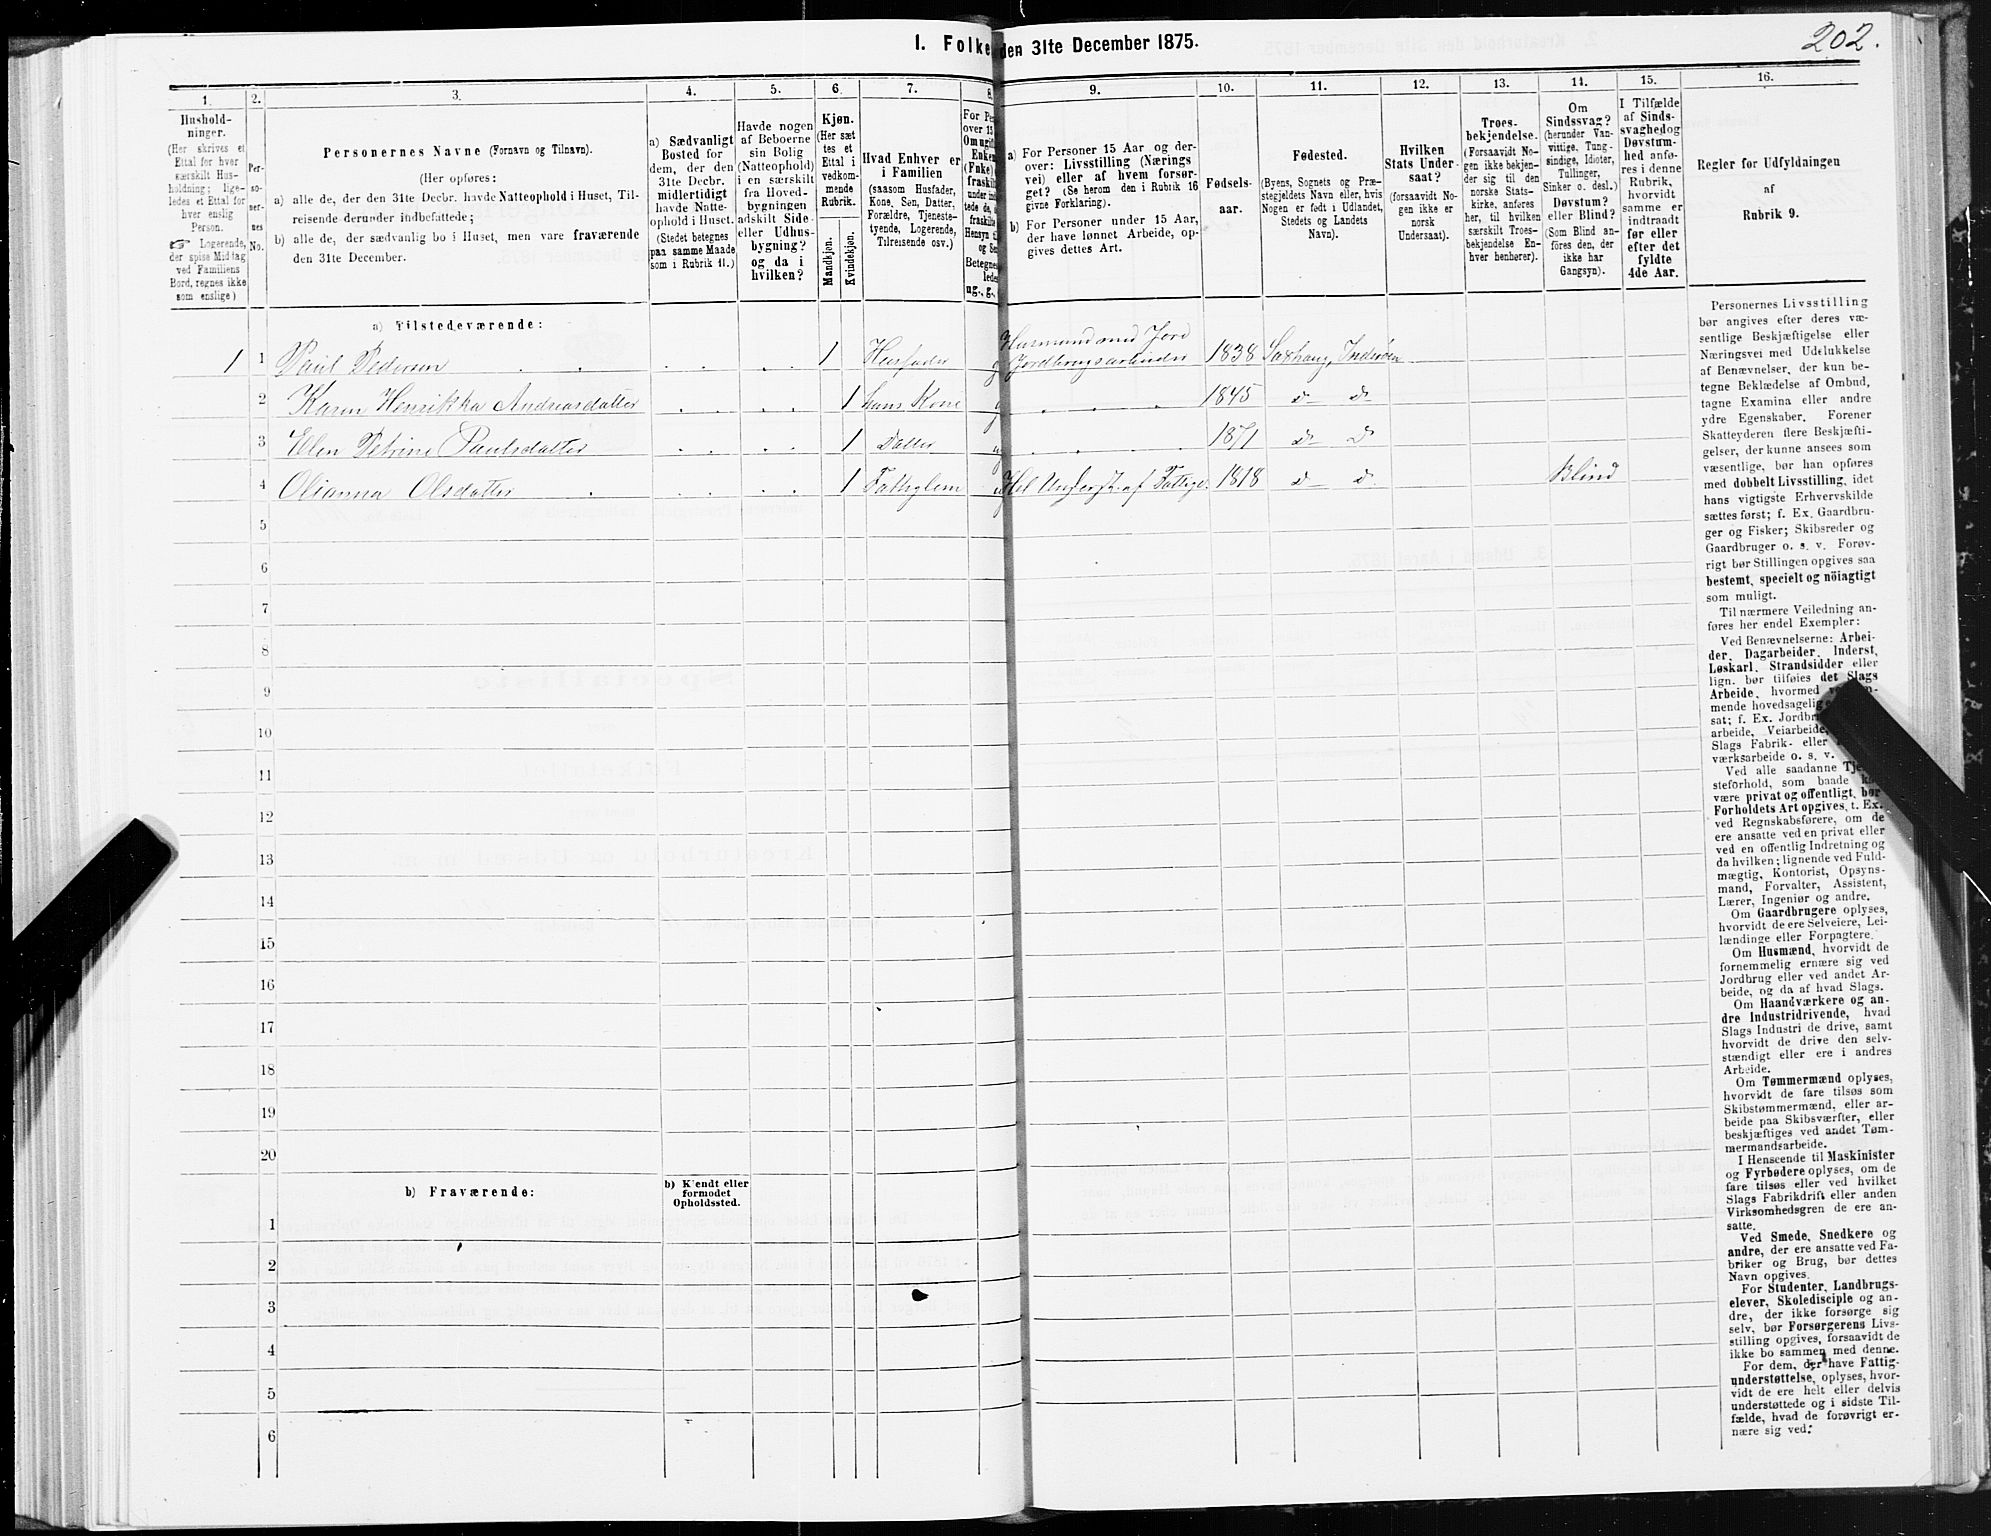 202.
1. Folke den 31te December 1875.
1.
Hushold-
ninger.
(Her skrives et
Ettal for hver
særskilt Hus-
holdning; lige-
ledes et Ettal for
hver enslig
Person.
Logerende,
der spise Middag
ved Familiens
Bord, regnes ikke
som enslige)
2.
Per-
so-
ner-
nes
No.
3.
Personernes Navne (Fornavn og Tilnavn).
(Her opføres:
a) alle de, der den 31te Decbr. havde Natteophold i Huset, Til-
reisende derunder indbefattede;
b) alle de, der sædvanlig bo i Huset, men vare fraværende
den 31te December.
4.
a) Sædvanligt
Bosted for
dem, der den
31te Decbr.
midlertidigt
havde Natte-
ophold i Huset.
(Stedet betegnes
paa samme Maade
som i Rubrik 11.)
5.
Havde nogen
af Beboerne
sin Bolig
(Natteophold)
i en særskilt
fra Hoved-
bygningen
adskilt Side-
eller Udhus-
bygning?
og da i
hvilken?
6.
Kjøn.
(Her sæt
tes et
Ettal i
vedkom-
mende
Rubrik.
Mandkjøn.
Kvindekjøn.
7.
Hvad Enhver er
i Familien
(saasom Husfader,
Kone, Søn, Datter,
Forældre, Tjeneste-
tyende, Logerende,
Tilreisende osv.)
8.
For Pe
over 15
Om ugift
Enken
(Enke)
fraskil
ug., g.,
9.
a) For Personer 15 Aar og der-
over: Livsstilling (Nærings
vei) eller af hvem forsør-
get? (Se herom den i Rubrik 16
givne Forklaring).
b) For Personer under 15 Aar,
der have lønnet Arbeide, op-
gives dettes Art.
10.
Fødsels-
aar.
11.
Fødested.
(Byens, Sognets og Præ-
stegjeldets Navn eller, hvis
Nogen er født i Udlandet,
Stedets og Landets
Navn).
12.
Hvilken
Stats Under-
saat?
(forsaavidt No-
gen ikke er
norsk
Undersaat).
13.
Troes-
bekjendelse.
(Forsaavidt No-
gen ikke bekjen-
der sig til den
norske Stats-
kirke, anføres
her, til hvilken
særskilt Troes-
bekjendelse En-
hver henhører).
14.
Om
Sindssvag?
(herunder Van-
vittige, Tung-
sindige, Idioter,
Tullinger,
Sinker o. desl.)
Døvstum?
eller Blind?
(Som Blind an-
føres den, der
ikke har
Gangsyn).
15.
I Tilfælde
af Sinds-
svaghed og
Døvstum-
hed anfø-
res i denne
Rubrik,
hvorvidt
samme er
indtraadt
før eller
efter det
fyldte
4de Aar.
16.
Regler for Udfyldningen
af
Rubrik 9.
a) Tilstedeværende:
1 1 Paul Pedersen 1 Husfader g Husmand med Jord Jordbrugsarbeider 1838 Saxhaug, Inderøen
2 Karen Henrikka Andreasdatter 1 hans Kone g 1845 do do
3 Elen Petrine Paulsdatter 1 Datter u 1871 do do
4 Olianna Olsdatter 1 Fattiglem u Hel Underst. af Fattigv. 1818 do do Blind
5
6
7
8
9
10
11
12
13
14
15
16
17
18
19
20
b) Fraværende:
b) Kjendt eller
formodet
Opholdssted.
1
2
3
4
5
6
Personernes Livsstilling
bør angives efter deres væ-
sentlige Beskjæftigelse eller
Næringsvei med Udelukkelse
af Benævnelser, der kun be-
tegne Beklædelse af Ombud,
tagne Examina eller andre
ydre Egenskaber. Forener
Skatteyderen flere Beskjæfti-
gelser, der kunne ansees som
væsentlige, bør han opføres
med dobbelt Livsstilling, idet
hans vigtigste Erhvervskilde
sættes først; f. Ex. Gaardbru-
ger og Fisker; Skibsreder og
Gaardbruger o. s. v. Forøv-
rigt bør Stillingen opgives saa
bestemt, specielt og nöiagtigt
som muligt.
Til nærmere Veiledning an-
føres her endel Exempler:
Ved Benævnelserne: Arbei-
der, Dagarbeider, Inderst,
Løskarl, Strandsidder eller
lign. bør tilføies det Slags
Arbeide, hvormed
mende hovedsagelig
sat; f. Ex. Jordbr
arbeide, Veiarbeide,
Slags Fabrik- eller
værksarbeide o. s. v.
Ved alle saadanne Tje
steforhold, som baade k
være privat og offentligt, bør
Forholdets Art opgives, t. Ex.
ved Regnskabsførere, om de
ere ansatte ved en privat eller
ved en offentlig Indretning og
da hvilken; lignende ved Fuld-
mægtig, Kontorist, Opsyns-
mand, Forvalter, Assistent,
Lærer, Ingeniør og andre.
Om Gaardbrugere oplyses,
hvorvidt de ere Selveiere, Lei-
lændinge eller Forpagtere.
Om Husmænd, hvorvidt de
fornemmelig ernære sig ved
Jordbrug eller ved andet Ar-
beide, og da af hvad Slags.
Om Haandværkere og an-
dre Industridrivende, hvad
Slags Industri de drive, samt
hvorvidt de drive den selv-
stændigt eller ere i andres
Arbeide.
Om Tømmermænd oplyses,
hvorvidt de fare tilsøs som
Skibstømmermænd, eller ar-
beide paa Skibsværfter, eller
beskjæftiges ved andet Tøm-
mermandsarbeide.
I Henseende til Maskinister
og Fyrbødere oplyses, om de
fare tilsøs eller ved hvilket
Slags Fabrikdrift eller anden
Virksomhedsgren de ere an-
satte.
Ved Smede, Snedkere og
andre, der ere ansatte ved Fa-
briker og Brug, bør dettes
Navn opgives.
For Studenter, Landbrugs-
elever, Skoledisciple og an-
dre, der ikke forsørge sig
selv, bør Forsørgerens Livs-
stilling opgives, forsaavidt de
ikke bo sammen med denne.
For dem, der have Fattig-
understøttelse, oplyses, hvor-
vidt de ere helt eller delvis
understøttede og i sidste Til-
fælde, hvad de forøvrigt er-
nære sig ved.